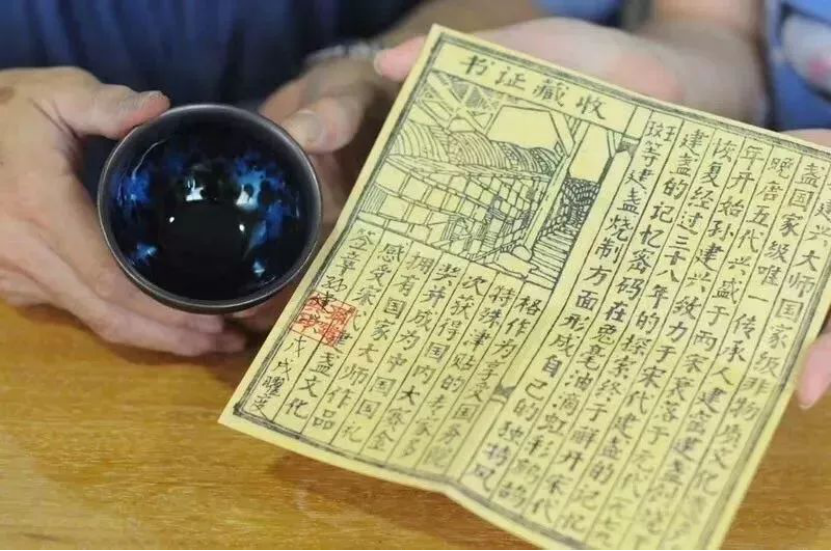 收藏证书
建兴大师国家级非物质文化
盏国家级唯一传承人建盏建盏创烧于
晚唐五代兴盛于两宋衰落于元代一九七九
年开始孙建兴致力于宋代建盏的
恢复经过三十八年的探索终于解开宋代
建盏的记忆密码在兔毫油滴虹彩鹧鸪
斑等建盏烧制方面形成自己的独特风
格作为享受国务院
特殊津贴的专家多
次获得国内大赛金
奖并成为中国国礼
拥有国家大师作品
感受宋代建盏文化
签章孙建兴戊戌曜变